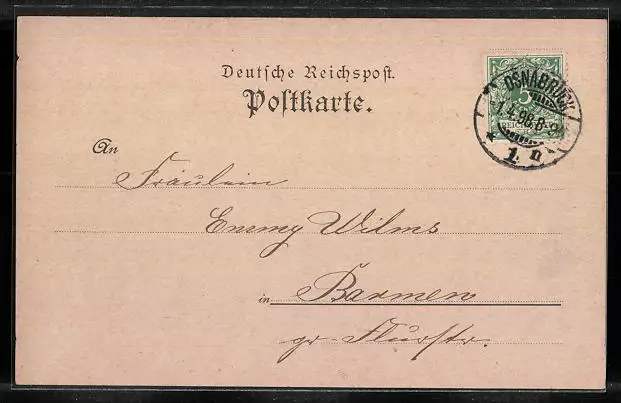 Deutsche Reichspost.
Postkarte.
OSNABRÜCK
1.4.98.8-9
* 1. n
An
Fräulein
Emmy Wilms
in Barmen
gr. Flurstr.